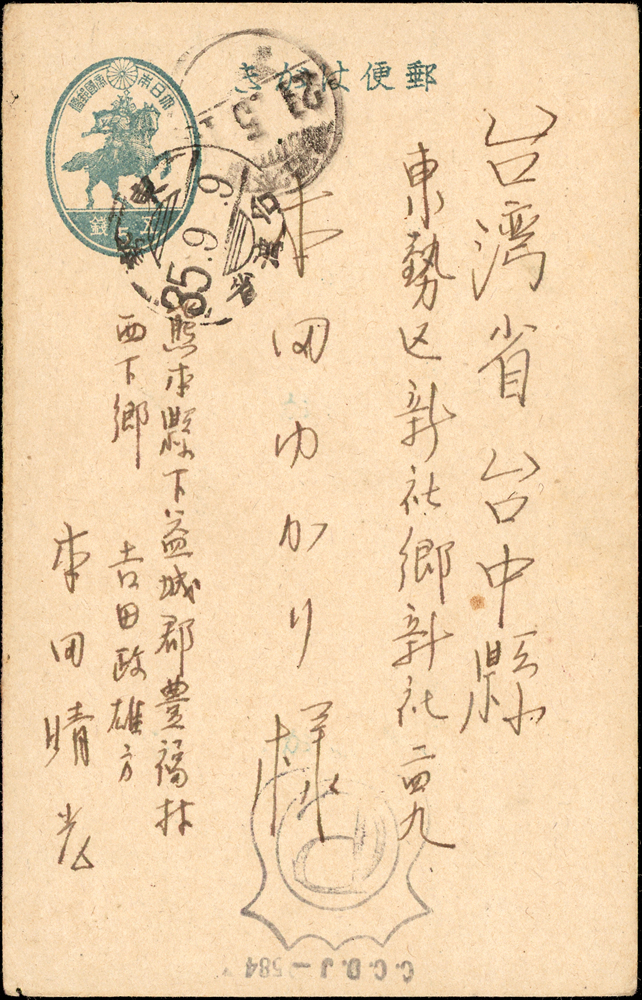 郵便はがき
大日本帝國郵便
五錢
台湾省台中縣
東勢区新社郷新社二四九
本田ゆかり様
熊本縣下益城郡豊福村
西下郷
吉田政雄方
本田晴光
台湾省
35.9.9
C.C.D.J-584